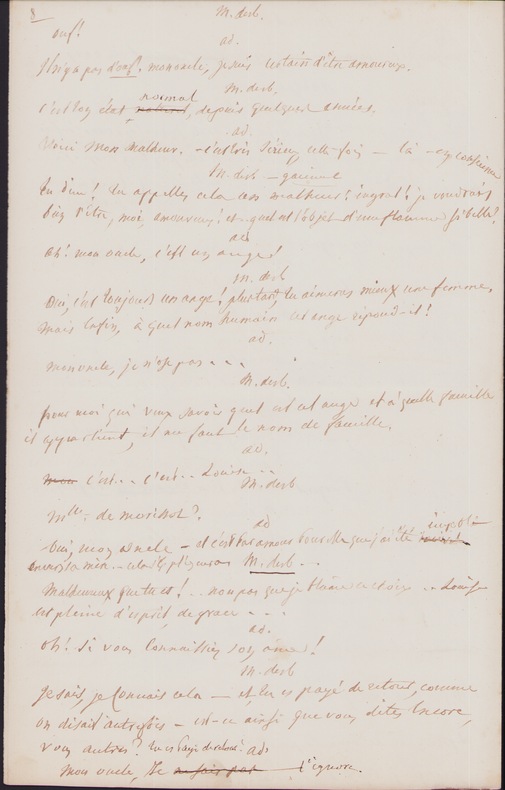 8
M. derb.
ouf!
ad.
Il n'y a pas d'ouf! mon oncle, je suis certain d'être amoureux.
M. derb.
C'est ton état normal, depuis quelques années.
ad.
Voici mon malheur. - c'est très sérieux cette fois - là - en conscience
M. derb - gaiement
tu appelles cela un malheur! ingrat! je voudrais
bien l'être, moi, amoureux! et quel est l'objet d'une flamme si belle?
ad
ah! mon oncle, c'est un ange!
M. derb
Oui, c'est toujours un ange! plus tard, tu aimeras mieux une femme,
mais enfin, à quel nom humain cet ange répond-il!
ad.
mon oncle, je n'ose pas - - -
M. derb.
pour moi qui veux savoir quel est cet ange et à quelle famille
il appartient, il me faut le nom de famille.
ad.
c'est.. c'est.. Louise...
M. derb
Mlle. de
ad
Oui, mon oncle - et c'est par amour pour elle que j'ai été impoli
M. derb -
Malheureux que tu es! .. non pas que je blâme ce choix .. Louise
est pleine d'esprit de grace - - -
ad.
oh! si vous connaissiez son âme!
M. derb
Je sais, je connais cela - et tu es payé de retour, comme
on disait autrefois - est-ce ainsi que vous dites encore,
vous autres? tu es payé de retour?
ad.
Mon oncle, Je ne sais pas l'ignore.